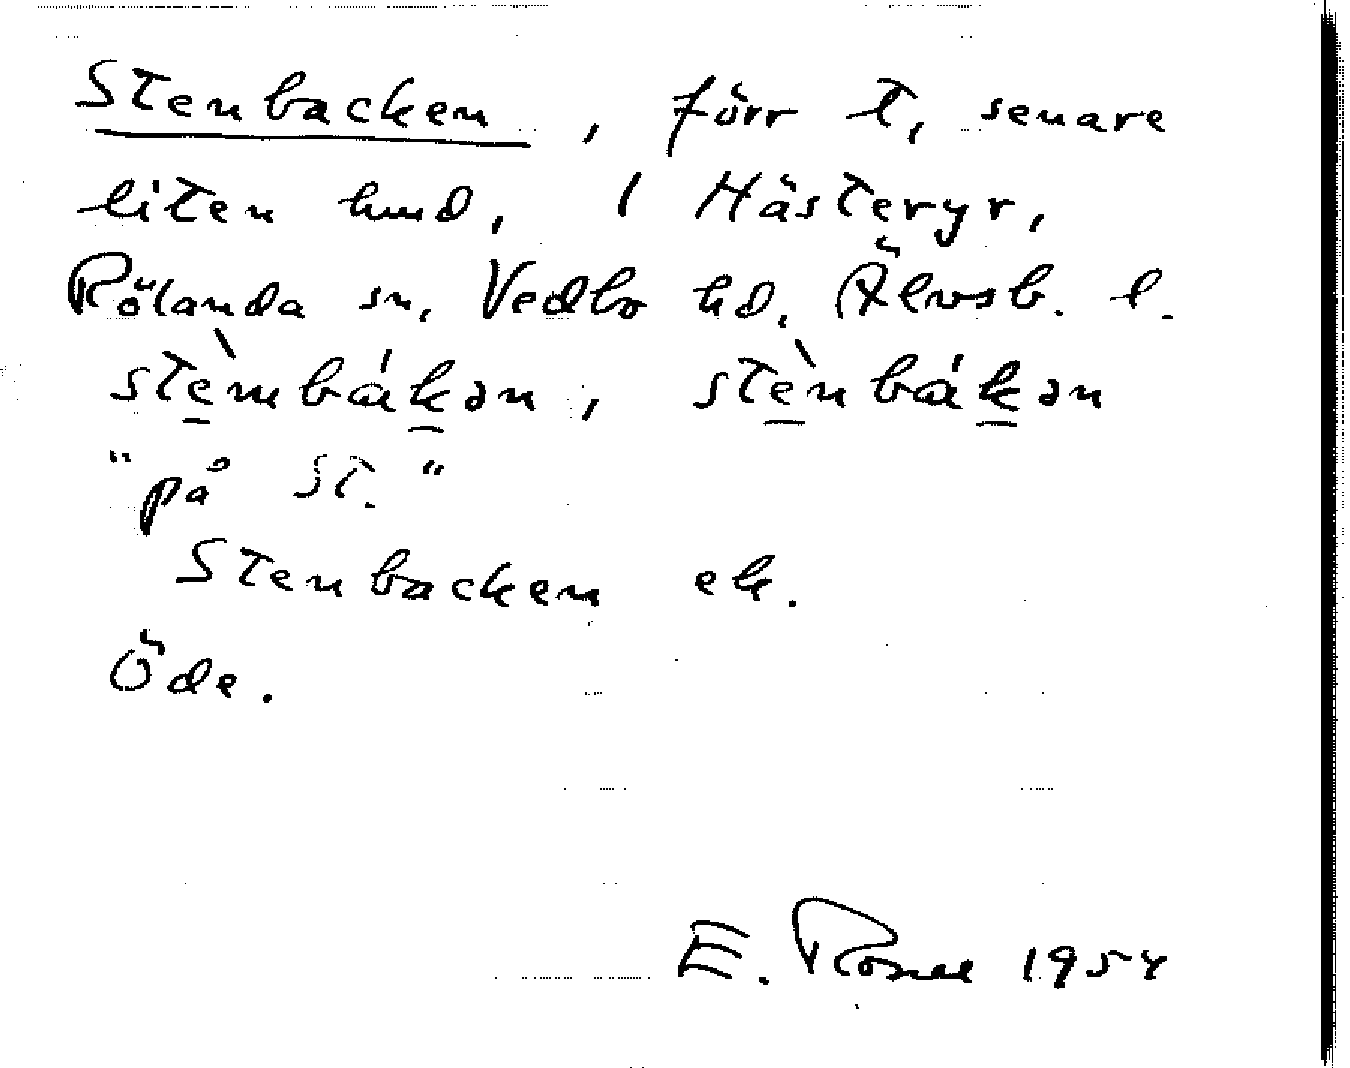 Stenbacken, förr t, senare
liten hmd, i Hästeryr,
Rölanda sn, Vedbo hd, Älvsb. l.
stèmbákən, stènbákən
"på St."
Stenbacken ek.
Öde.
E. 1954